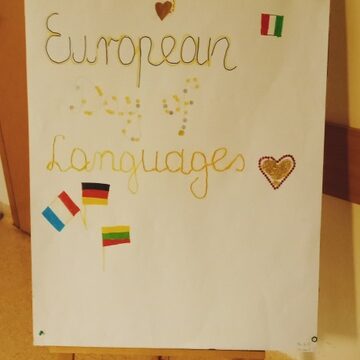 European
Day of
Languages